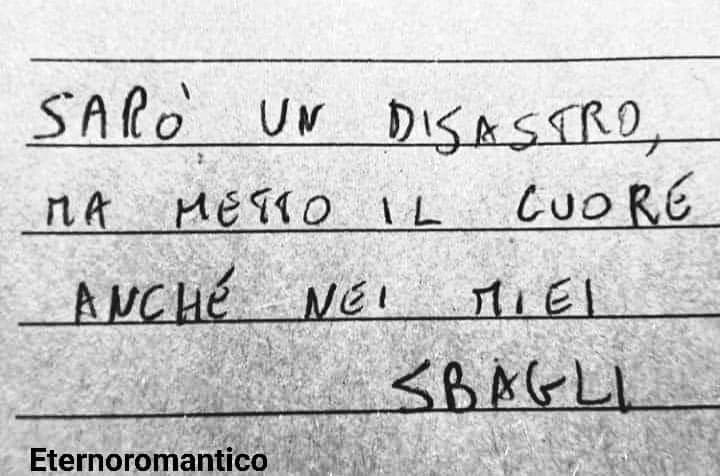 SARÒ UN DISASTRO,
MA METTO IL CUORE
ANCHE NEI MIEI
SBAGLI
Eternoromantico